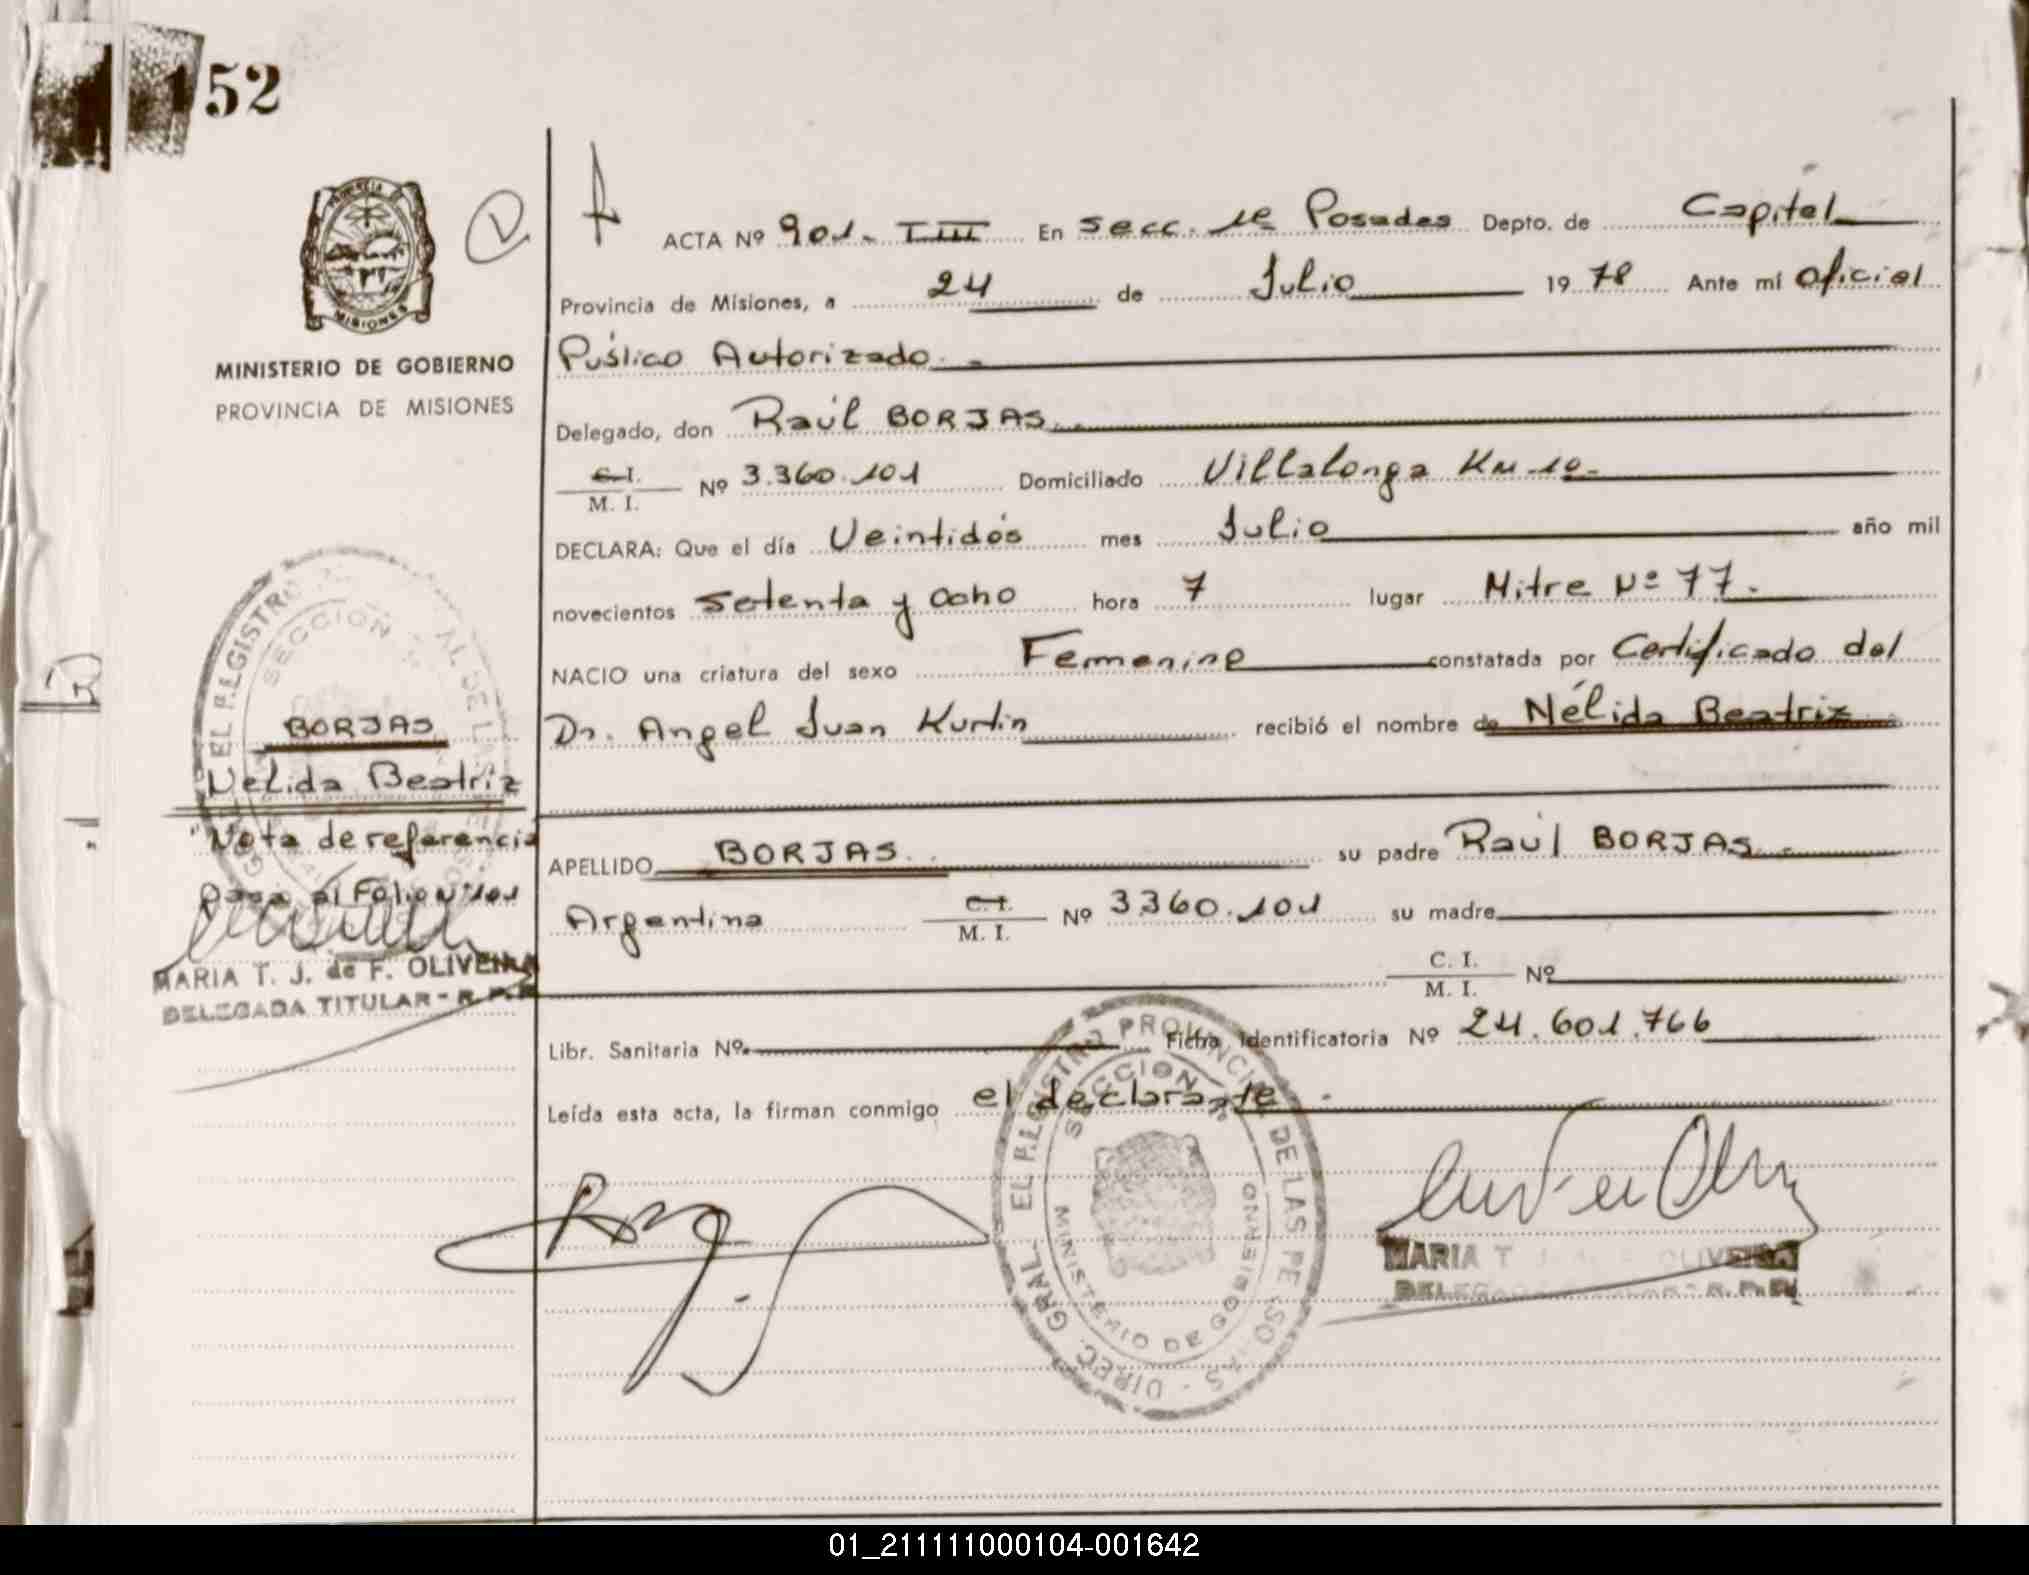 152
PROVINCIA
MISIONES
MINISTERIO DE GOBIERNO
PROVINCIA DE MISIONES
ACTA Nº 901. TIII En Secc. 1ª Posadas Depto. de Capital
Provincia de Misiones, a 24 de Julio 19 78 Ante mí Oficial
Público Autorizado.-
Delegado, don Raúl BORJAS.
C. I.
M. I. Nº 3.360.101 Domiciliado Villalonga Km 10.
DECLARA: Que el día Veintidós mes Julio año mil
novecientos Setenta y Ocho hora 7 lugar Mitre Nº 77.
NACIO una criatura del sexo Femenino constatada por Certificado del
Dr. Angel Juan Kurtin recibió el nombre de Nélida Beatriz
APELLIDO BORJAS. su padre Raúl BORJAS.
Argentina C. I.
M. I. Nº 3360.101 su madre
C. I.
M. I. Nº
Libr. Sanitaria Nº Ficha Identificatoria Nº 24.601.766
Leída esta acta, la firman conmigo el declarante.
BORJAS
Nelida Beatriz
"Nota de referencia
pasa al Folio Nº 101
MARIA T. J. de F. OLIVEIRA
DELEGADA TITULAR - R.P.P.
DIREC. GRAL. EL REGISTRO PROVINCIAL DE LAS PERSONAS
SECCION 1ª
MINISTERIO DE GOBIERNO
MARIA T J. OLIVEIRA
01_211111000104-001642